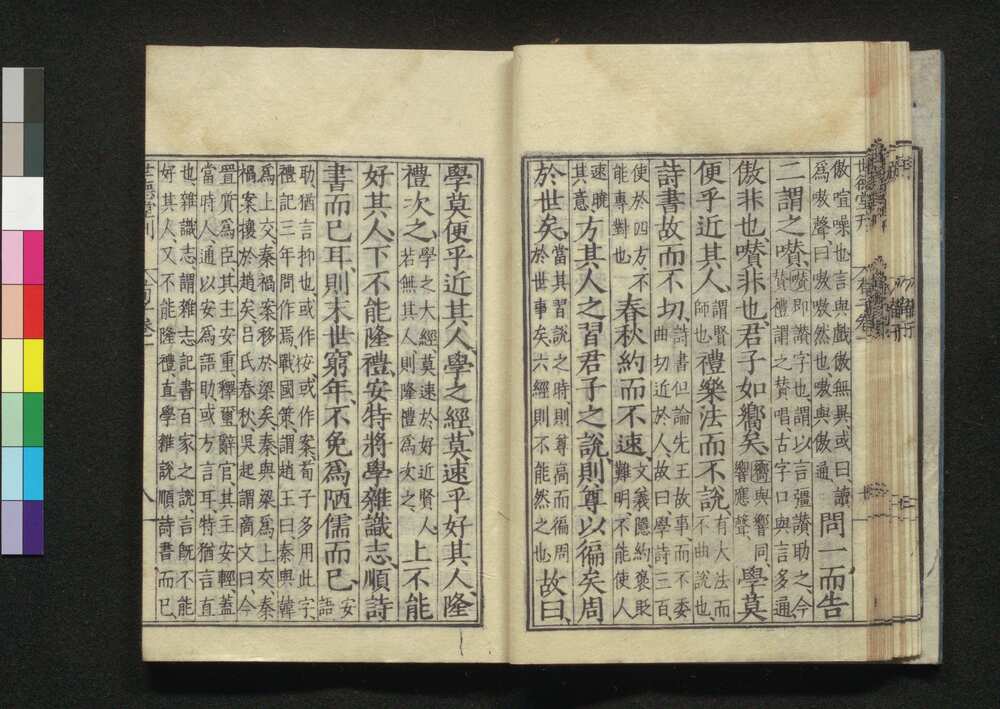 世德堂刊
傲喧噪也言與戲傲無異或曰讀
為嗷聲曰嗷嗷然也嗷與傲通
問一而告
二謂之囋
囋即讚字也謂以言彊讚助之今
贊禮謂之贊唱古字口與言多通
傲非也囋非也君子如嚮矣
嚮與響同
響應聲
學莫
便乎近其人
謂賢
師也
禮樂法而不說
有大法而
不曲說也
詩書故而不切
詩書但論先王故事而不委
曲切近於人故曰學詩三百
使於四方不
能專對也
春秋約而不速
文義隱約褒貶
難明不能使人
速曉
其意
方其人之習君子之說則尊以徧矣周
於世矣
當其習說之時則尊高而徧周
於世事矣六經則不能然之也
故曰
學莫便乎近其人學之經莫速乎好其人隆
禮次之
學之大經莫速於好近賢人
若無其人則隆禮為次之
上不能
好其人下不能隆禮安特將學雜識志順詩
書而已耳則末世窮年不免為陋儒而已
安
語
助猶言抑也或作桉或作案荀子多用此字
禮記三年問作焉戰國策謂趙王曰秦與韓
為上交秦禍案移於梁矣秦與梁為上交秦
禍案攘於趙矣呂氏春秋吳起謂商文曰今
置質為臣其主安重釋璽辭官其主安輕蓋
當時人通以安為語助或方言耳特猶言直
也雜識志謂雜志記書百家之說言既不能
好其人又不能隆禮直學雜說順詩書而已